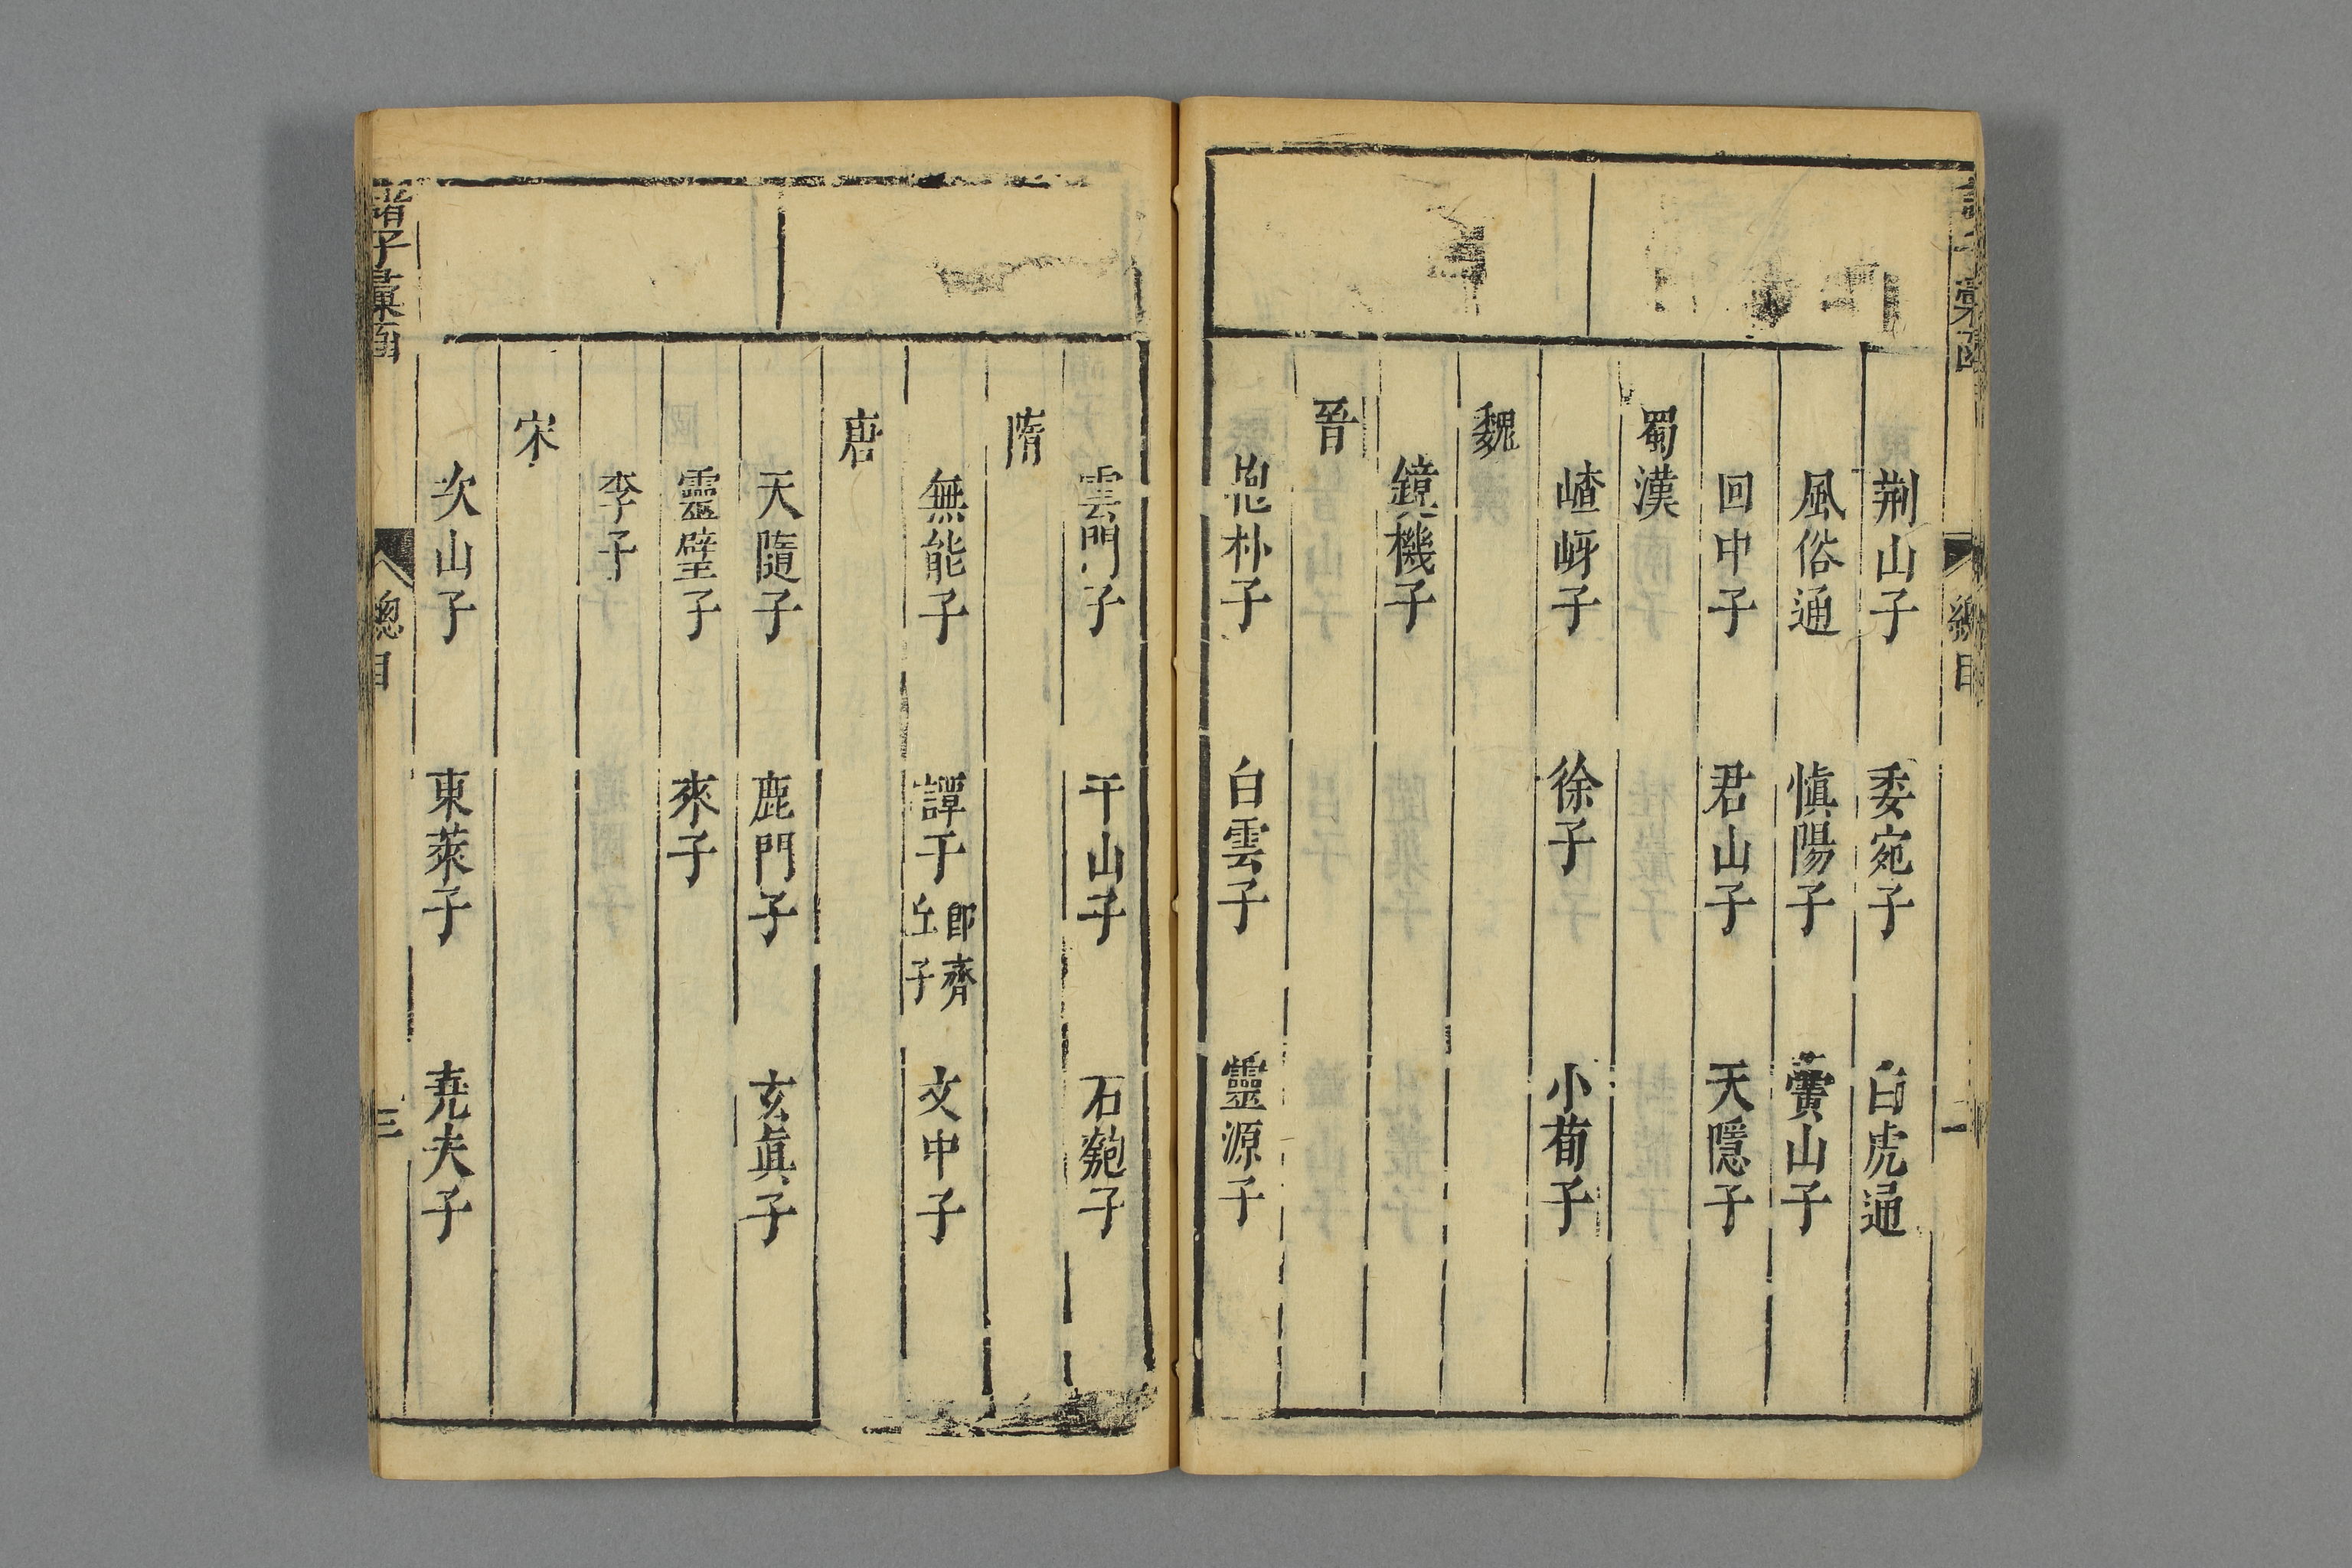 荆山子 委宛子 白虎通
風俗通 愼陽子 黌山子
回中子 君山子 天隱子
蜀漢
嵖岈子 徐子 小荀子
魏
鏡機子
晉
抱朴子 白雲子 靈源子
雲門子 干山子 石匏子
隋
無能子 譚子 即齊丘子 文中子
唐
天隨子 鹿門子 玄眞子
靈璧子 來子
李子
宋
次山子 東萊子 尭夫子
諸子彙函 總目 三